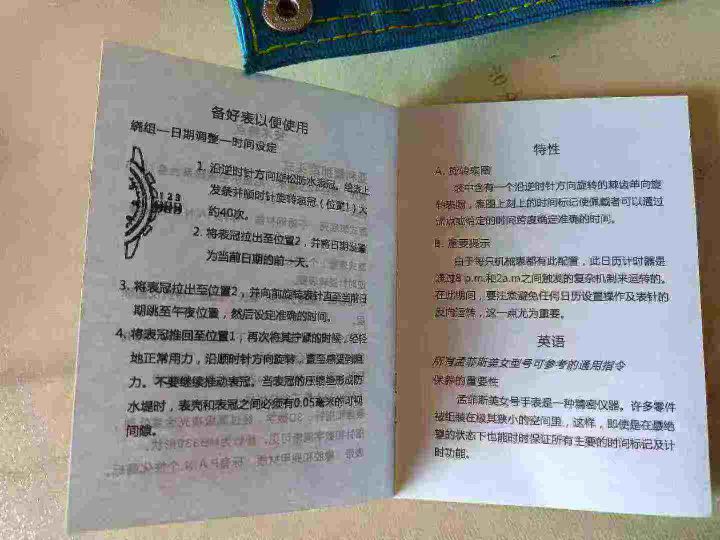 备好表以便使用
绕组—日期调整—时间设定
1 2 3
1. 沿逆时针方向旋松防水表冠。给表上
发条并顺时针旋转表冠（位置1）大
约40次。
2. 将表冠拉出至位置2，并将日期设置
为当前日期的前一天。
3. 将表冠拉出至位置2，并向前旋转表针直至当前日
期跳至午夜位置，然后设定准确的时间。
4. 将表冠推回至位置1，再次将其拧紧的时候，轻轻
地正常用力，沿顺时针方向旋转，直至感受到阻
力。不要继续推动表冠。当表冠的压缩垫形成防
水堤时，表壳和表冠之间必须有0.05毫米的可视
间隙。
特性
A. 旋转表圈
表中含有一个沿逆时针方向旋转的棘齿单向旋
转表圈，表圈上刻上的时间标记使佩戴者可以通过
零点或给定的时间跨度确定准确的时间。
B. 重要提示
由于每只机械表都有此配置，此日历计时器是
通过8 p.m.和2a.m之间触发的复杂机制来运转的。
在此期间，要注意避免任何日历设置操作及表针的
反向运转，这一点尤为重要。
英语
所有孟菲斯美女型号可参考的通用指令
保养的重要性
孟菲斯美女号手表是一种精密仪器。许多零件
被组装在极其狭小的空间里，这样，即使是在最绝
望的状态下也能时时保证所有主要的时间标记及计
时功能。